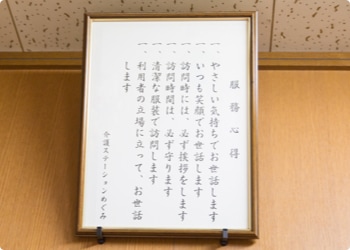 服務心得
一、やさしい気持ちでお世話します
一、いつも笑顔でお世話します
一、訪問時には、必ず挨拶をします
一、訪問時間は、必ず守ります
一、清潔な服装で訪問します
一、利用者の立場に立って、お世話
します
介護ステーションめぐみ